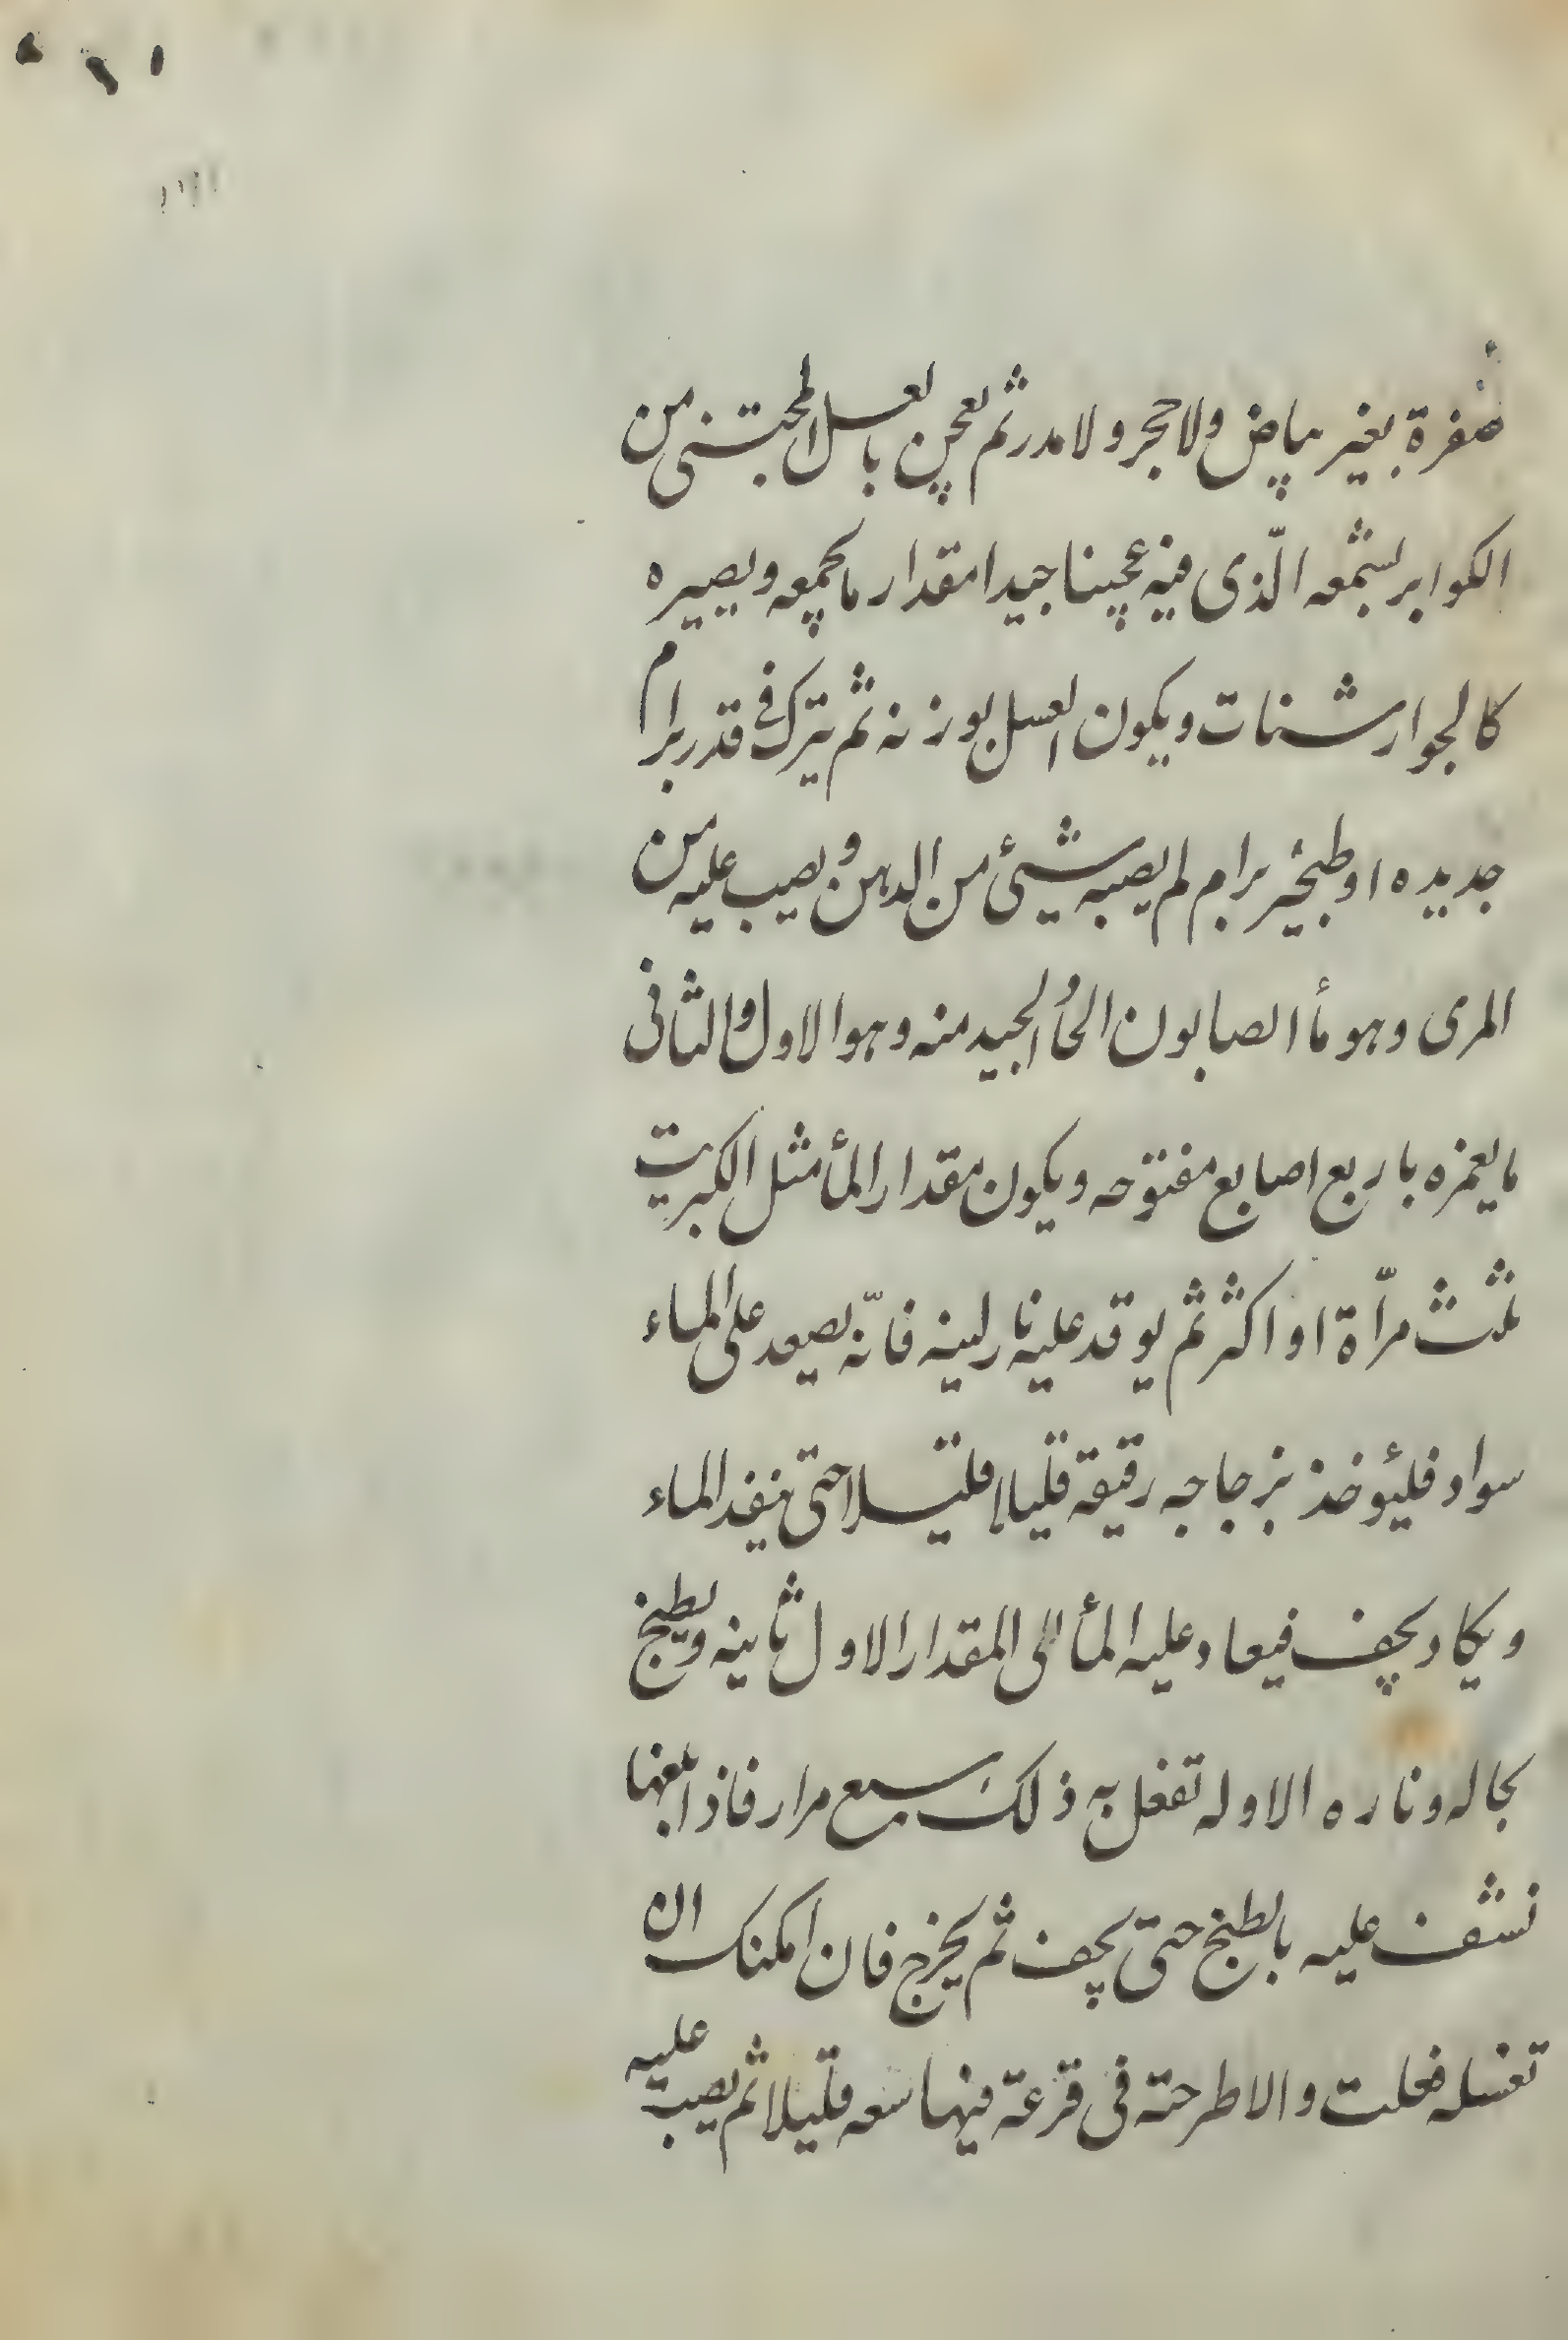 صفرة بغير بياض ولا حجر ولا مدر ثم يعجن بالعسل المجتنى من
الكوابر بشمعه الّذى فيه عجينا جيدا مقدار ما يجمعه ويصيره
كالجوارشنات ويكون العسل بوزنه ثم يترك فى قدر برام
جديده او طبخير برام لم يصبه شيئ من الدهن ويصب عليه من
المرى وهو مأ الصابون الحاد الجيد منه وهو الاول والثانى
ما يغمره باربع اصابع مفتوحه ويكون مقدار المأ مثل الكبريت
ثلث مرّاة او اكثر ثم يوقد عليه نار لينه فانّه يصعد على الماء
سواد فليؤخذ بزجاجه رقيقة قليلا قليلا حتى ينفد الماء
ويكاد يجف فيعاد عليه المأ الى المقدار الاول ثانيه ويطبخ
بحاله وناره الاوله تفعل به ذلك سبع مرار فاذا بلغها
نشف عليه بالطبخ حتى يجف ثم يخرج فان امكنك ان
تغسله فعلت والا طرحته فى قرعة فيها سعه قليلا ثم يصب عليه